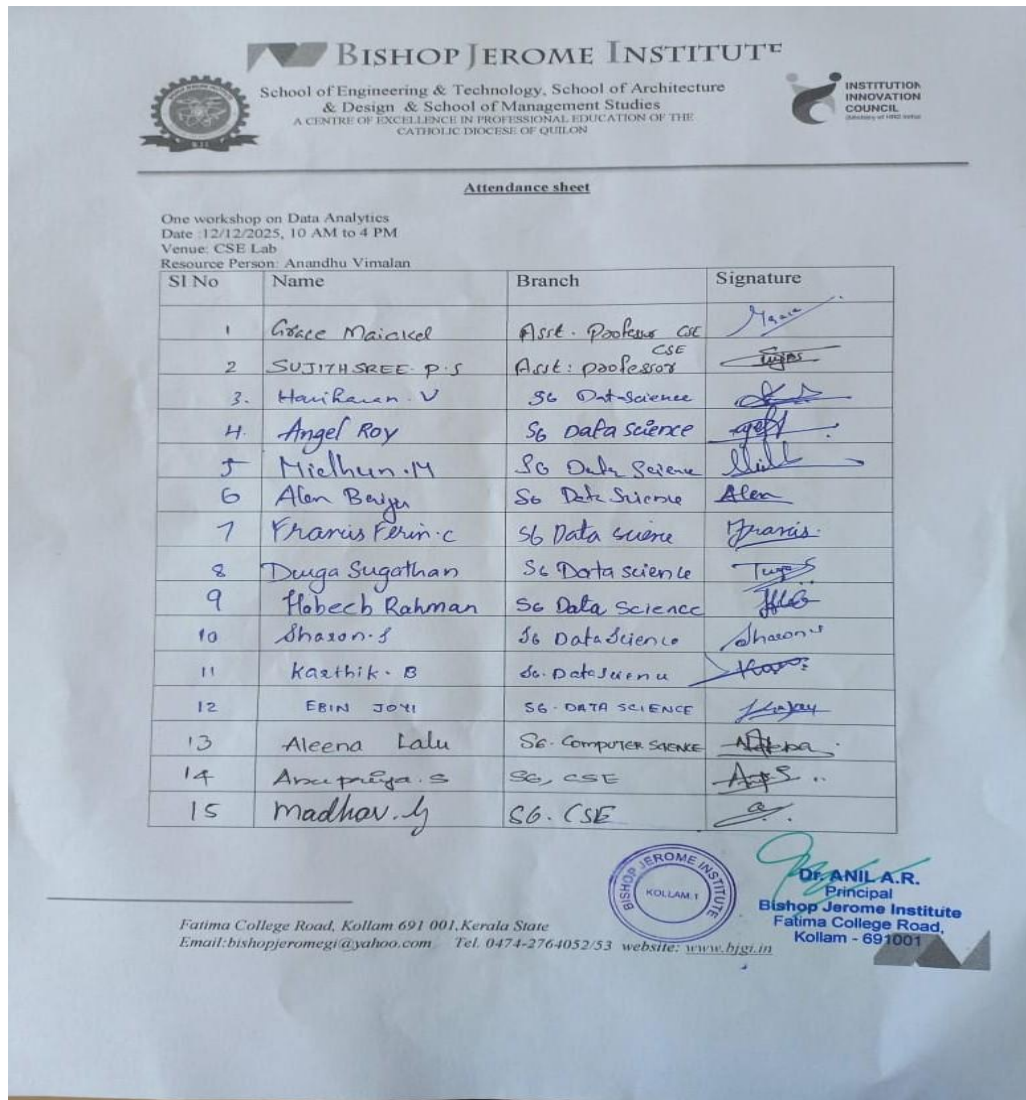 BISHOP JEROME INSTITUTE
School of Engineering & Technology, School of Architecture
& Design & School of Management Studies
A CENTRE OF EXCELLENCE IN PROFESSIONAL EDUCATION OF THE
CATHOLIC DIOCESE OF QUILON
INSTITUTION
INNOVATION
COUNCIL
Attendance sheet
One workshop on Data Analytics
Date :12/12/2025, 10 AM to 4 PM
Venue: CSE Lab
Resource Person: Anandhu Vimalan
Sl No Name Branch Signature
1 Grace Asst. Professor CSE Grace
2 SUJITHSREE. P.S Asst: professor CSE
3. Hariharan. V S6 Data Science
4. Angel Roy S6 Data Science
5 Midhun.M S6 Data Science
6 Alen S6 Data Science Alen
7 Francis Ferin.C S6 Data Science Francis
8 Durga Sugathan S6 Data science
9 Rahman S6 Data Science
10 Sharon.S S6 Data Science Sharon
11 Karthik. B S6. Data Science
12 EBIN S6. DATA SCIENCE
13 Aleena Lalu S6. COMPUTER SCIENCE
14 S S6, CSE
15 Madhav. S6. CSE
BISHOP JEROME INSTITUTE
KOLLAM.1
Dr. ANIL A.R.
Principal
Bishop Jerome Institute
Fatima College Road,
Kollam - 691001
Fatima College Road, Kollam 691 001,Kerala State
Email:bishopjeromegi@yahoo.com Tel. 0474-2764052/53 website: www.bjgi.in